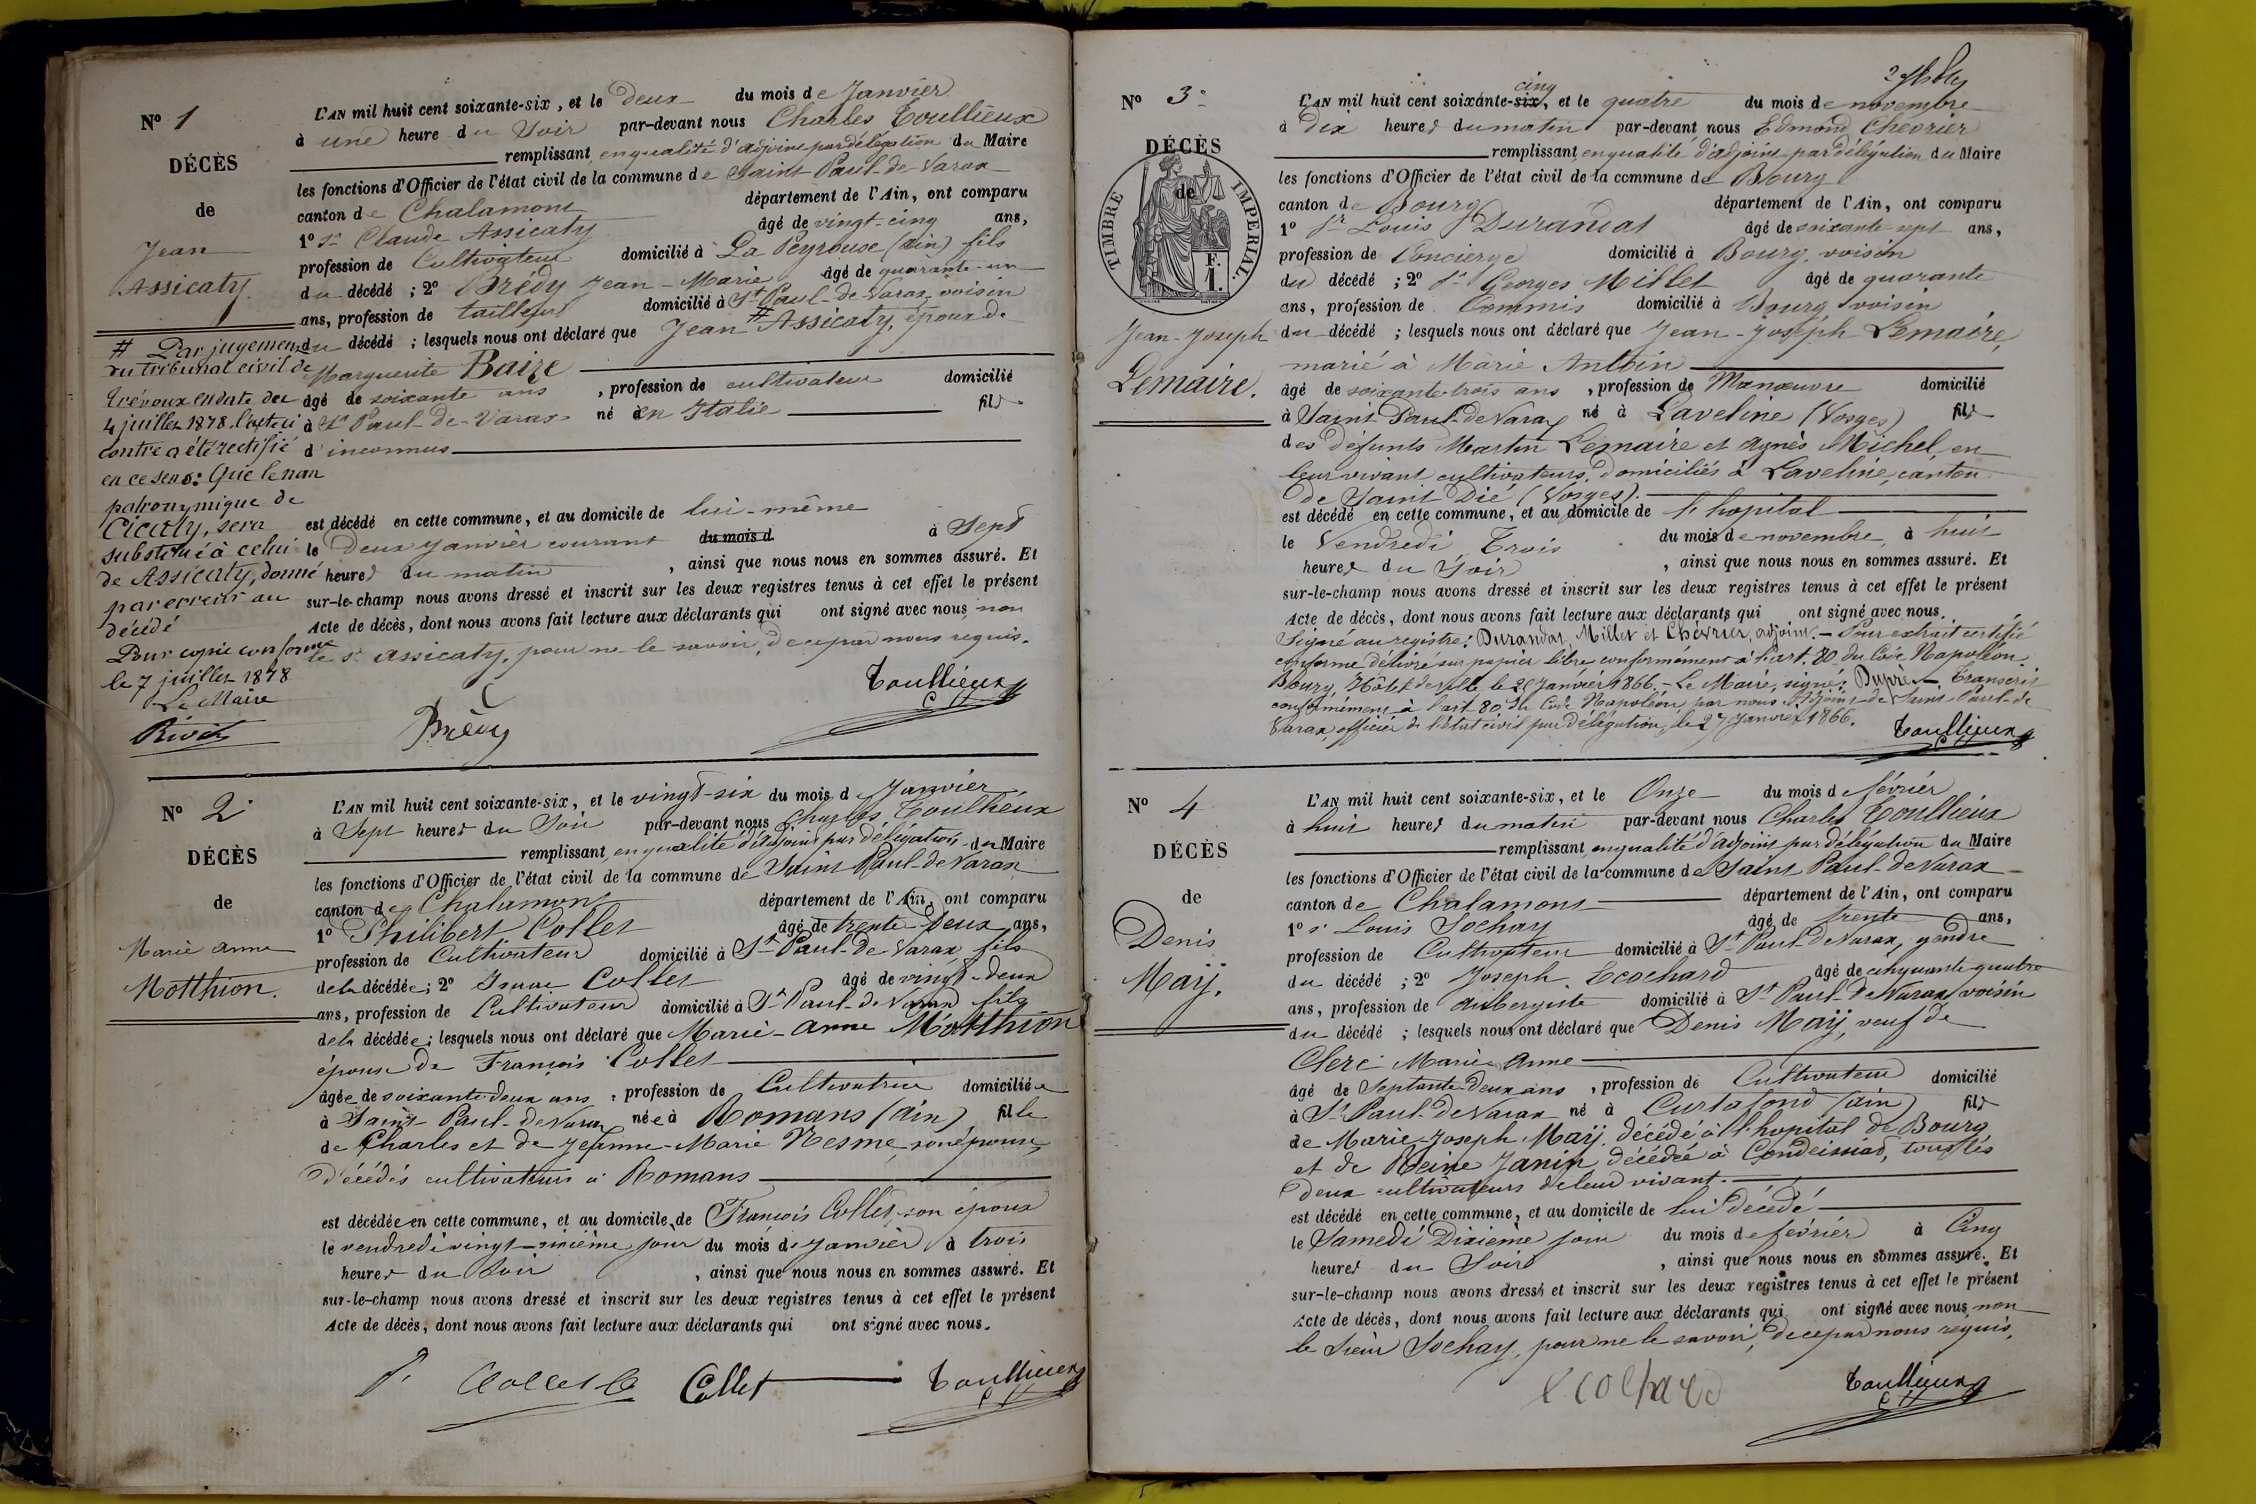 N° 1
DÉCÈS
de
Jean
Assicaty
L'AN mil huit cent soixante-six, et le deux du mois de Janvier
à une heure du Soir par-devant nous Charles Toullieux
remplissant en qualité d'adjoint par délégation du Maire
les fonctions d'Officier de l'état civil de la commune de Saint Paul-de-Varax
canton de Chalamont département de l'Ain, ont comparu
1° Sr Claude Assicaty âgé de vingt-cinq ans,
profession de Cultivateur domicilié à La Peyrouse (ain) fils
du décédé ; 2° Brédy Jean-Marie âgé de quarante-un
ans, profession de tailleur domicilié à St Paul-de-Varax, voisin
du décédé ; lesquels nous ont déclaré que Jean # Assicaty, époux de
Marguerite Baize
âgé de soixante ans, profession de cultivateur domicilié
à St Paul-de-Varax né en Italie fils
d'inconnus
est décédé en cette commune, et au domicile de lui-même
le Deux Janvier courant du mois d à Sept
heures du matin, ainsi que nous nous en sommes assuré. Et
sur-le-champ nous avons dressé et inscrit sur les deux registres tenus à cet effet le présent
Acte de décès, dont nous avons fait lecture aux déclarants qui ont signé avec nous, non
le Sr Assicaty, pour ne le savoir, de ce par nous requis.
Toullieux
Brédy
# Par jugement
du tribunal civil de
Trévoux en date du
4 juillet 1878 l'acte ci
contre a été rectifié
en ce sens: Que le nom
patronymique de
Cicaty, sera
substitué à celui
de Assicaty, donné
par erreur au
décédé
Pour copie conforme
le 7 juillet 1878
Le Maire
N° 2
DÉCÈS
de
Marie anne
Motthion.
L'AN mil huit cent soixante-six, et le vingt-six du mois d Janvier
à Sept heures du Soir par-devant nous Charles Toullieux
remplissant en qualité d'adjoint par délégation du Maire
les fonctions d'Officier de l'état civil de la commune de Saint Paul-de-Varax
canton de Chalamont département de l'Ain, ont comparu
1° Philibert Collet âgé de trente-Deux ans,
profession de Cultivateur domicilié à St Paul-de-Varax, fils
de la décédée; 2° Collet âgé de vingt-deux
ans, profession de Cultivateur domicilié à St Paul-de-Varax fils
de la décédée; lesquels nous ont déclaré que Marie-anne Motthion
épouse de François Collet
âgée de soixante deux ans, profession de Cultivatrice domiciliée
à Saint Paul-de-Varax née à Romans (ain) fille
de Charles et de Jeanne-Marie Nesme, son épouse,
Décédés cultivateurs à Romans
est décédée en cette commune, et au domicile de François Collet, son époux
le vendredi vingt-sixième jour du mois de Janvier à trois
heures du Soir, ainsi que nous nous en sommes assuré. Et
sur-le-champ nous avons dressé et inscrit sur les deux registres tenus à cet effet le présent
Acte de décès, dont nous avons fait lecture aux déclarants qui ont signé avec nous.
Collet
Toullieux
N° 3
DÉCÈS
de
TIMBRE IMPERIAL.
F.
1.
Jean-Joseph
Lemaire.
cinq
L'AN mil huit cent soixante-six, et le quatre du mois de novembre
à Dix heures du matin par-devant nous Edmond Chevrier
remplissant en qualité d'adjoint par délégation du Maire
les fonctions d'Officier de l'état civil de la commune de Bourg
canton de Bourg département de l'Ain, ont comparu
1° Sr Louis Durandat âgé de soixante-sept ans,
profession de Concierge domicilié à Bourg, voisin
du décédé ; 2° Sr Georges Millet âgé de quarante
ans, profession de Commis domicilié à Bourg voisin
du décédé ; lesquels nous ont déclaré que Jean-Joseph Lemaire,
marié à Marie Antoin
âgé de soixante trois ans, profession de Manœuvre domicilié
à Saint Paul-de-Varax né à Laveline (Vosges) fils
des défunts Martin Lemaire et agnès Michel, en
leur vivant cultivateurs, domiciliés à Laveline, canton
de Saint Dié (Vosges).
est décédé en cette commune, et au domicile de l'hopital
le Vendredi, Trois du mois de novembre, à huit
heures du Soir, ainsi que nous nous en sommes assuré. Et
sur-le-champ nous avons dressé et inscrit sur les deux registres tenus à cet effet le présent
Acte de décès, dont nous avons fait lecture aux déclarants qui ont signé avec nous.
Signé au registre: Durandat, Millet et Chevrier, adjoint. — Pour extrait certifié
conforme délivré sur papier libre conformément à l'art. 80 du Code Napoléon.
Bourg, Hôtel de Ville, le Janvier 1866. — Le Maire, signé: Dupré — Transcrit
conformément à l'art. 80 du Code Napoléon par nous Adjoint de Saint-Paul-de
Varax, officier de l'état civil par délégation, le 27 Janvier 1866.
Toullieux
N° 4
DÉCÈS
de
Denis
Maÿ.
L'AN mil huit cent soixante-six, et le Onze du mois de février
à huit heures du matin par-devant nous Charles Toullieux
remplissant en qualité d'adjoint par délégation du Maire
les fonctions d'Officier de l'état civil de la commune de Saint Paul-de Varax
canton de Chalamont département de l'Ain, ont comparu
1° Sr Louis Sochay âgé de trente ans,
profession de Cultivateur domicilié à St Paul-de Varax, gendre
du décédé ; 2° Joseph Ecochard âgé de cinquante quatre
ans, profession de aubergiste domicilié à St Paul-de Varax, voisin
du décédé ; lesquels nous ont déclaré que Denis Maÿ, veuf de
Clerc Marie Anne
âgé de Septante-Deux ans, profession de Cultivateur domicilié
à St Paul-de Varax né à Curtafond (ain) fils
de Marie-Joseph Maÿ, décédé à l'hopital de Bourg
et de Reine Janin, décédée à Condeissiat, tous les
Deux cultivateurs de leur vivant.
est décédé en cette commune, et au domicile de lui décédé
le Samedi Dixième jour du mois de février à Cinq
heures du Soir, ainsi que nous nous en sommes assuré. Et
sur-le-champ nous avons dressé et inscrit sur les deux registres tenus à cet effet le présent
Acte de décès, dont nous avons fait lecture aux déclarants qui ont signé avec nous, non
le Sieur Sochay, pour ne le savoir, de ce par nous requis.
Ecochard
Toullieux